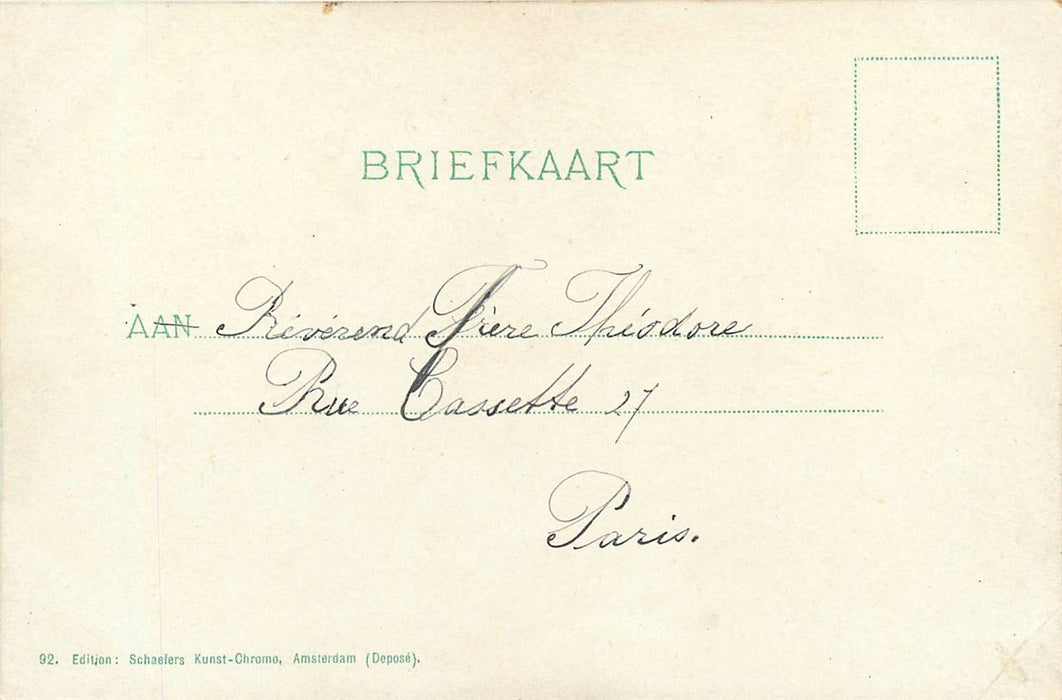 BRIEFKAART
AAN Révérend Frère Théodore
Rue Cassette 27
Paris.
92. Edition: Schaefers Kunst-Chromo, Amsterdam (Deposé).